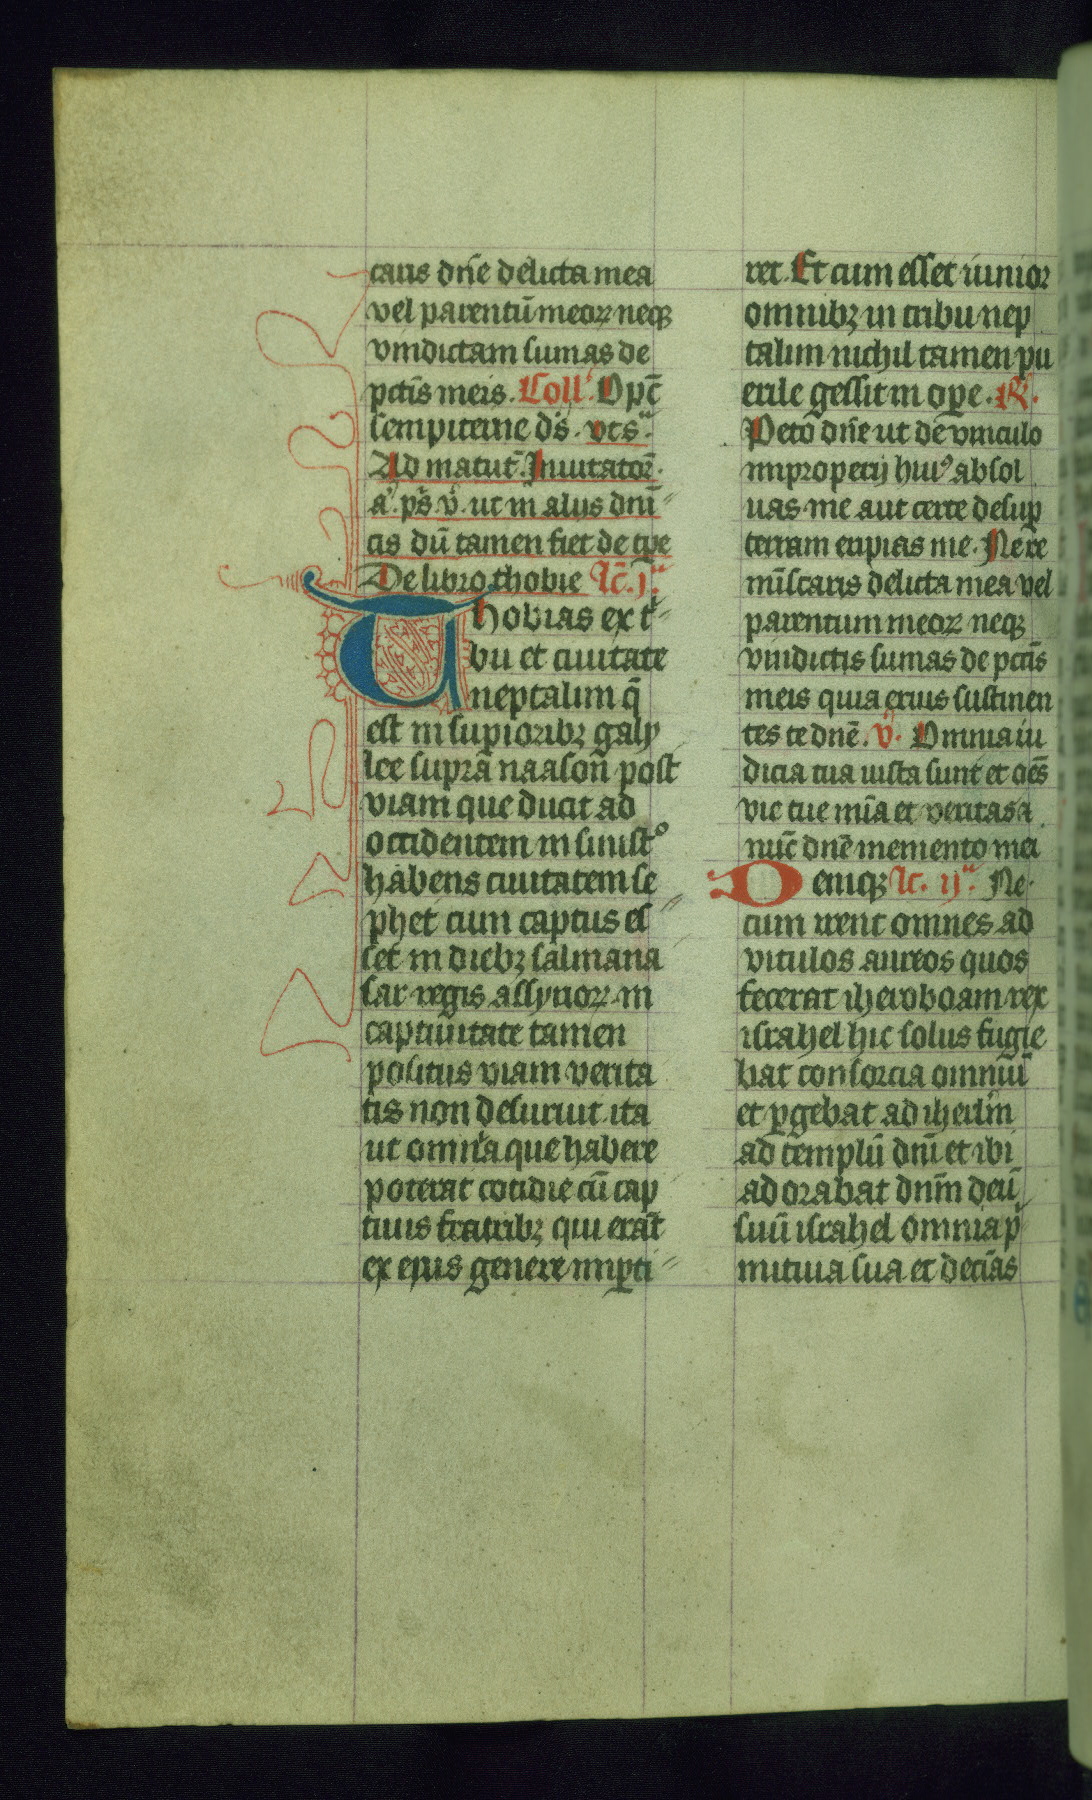 caris dn̄e delicta mea
vel parentū meoꝝ neqꝫ
vindictam sumas de
pctīs meis. Coll' Opc̄
sempiterne d's. vt s.ª
Ad matut̄. Inuitator̄.
a'. ps̄. v̄. ut in alijs dn̄i
cis dū tamen fiet de tpe
De libro thobie lc̄. jª.
Thobias ex t'
bu et ciuitate
neptalim q̄
est in supioribꝫ galy
lee supra naason post
viam que ducit ad
occidentem in sinist°
habens ciuitatem se
phet cum captus es
set in diebꝫ salmana
sar regis assyrioꝝ in
captiuitate tamen
positus viam verita
tis non deseruit ita
ut omnia que habere
poterat cotidie cū cap
tiuis fratribꝫ qui erāt
ex ejus genere imꝑti
ret. Et cum esset iunior
omnibꝫ in tribu nep
talim nichil tamen pu
erile gessit in oꝑe. R̄.
Peto dn̄e ut de vinculo
improperij huiꝰ absol
uas me aut certe desuꝑ
terram eripias me. Ne re
minīscaris delicta mea vel
parentum meoꝝ neqꝫ
vindictis sumas de pctīs
meis quia eruis sustinen
tes te dnē. v̄. Omnia iu
dicia tua iusta sunt et oēs
vie tue mīa et veritas a
nūc dnē memento mei
Deniqꝫ lc. ijª. Ne
cum irent omnes ad
vitulos aureos quos
fecerat iheroboam rex
israhel hic solus fugie
bat consorcia omniū
et ꝑgebat ad iherlm̄
ad templū dnī et ibi
adorabat dnm̄ deū
suū israhel omnia p'
mitiua sua et decīas